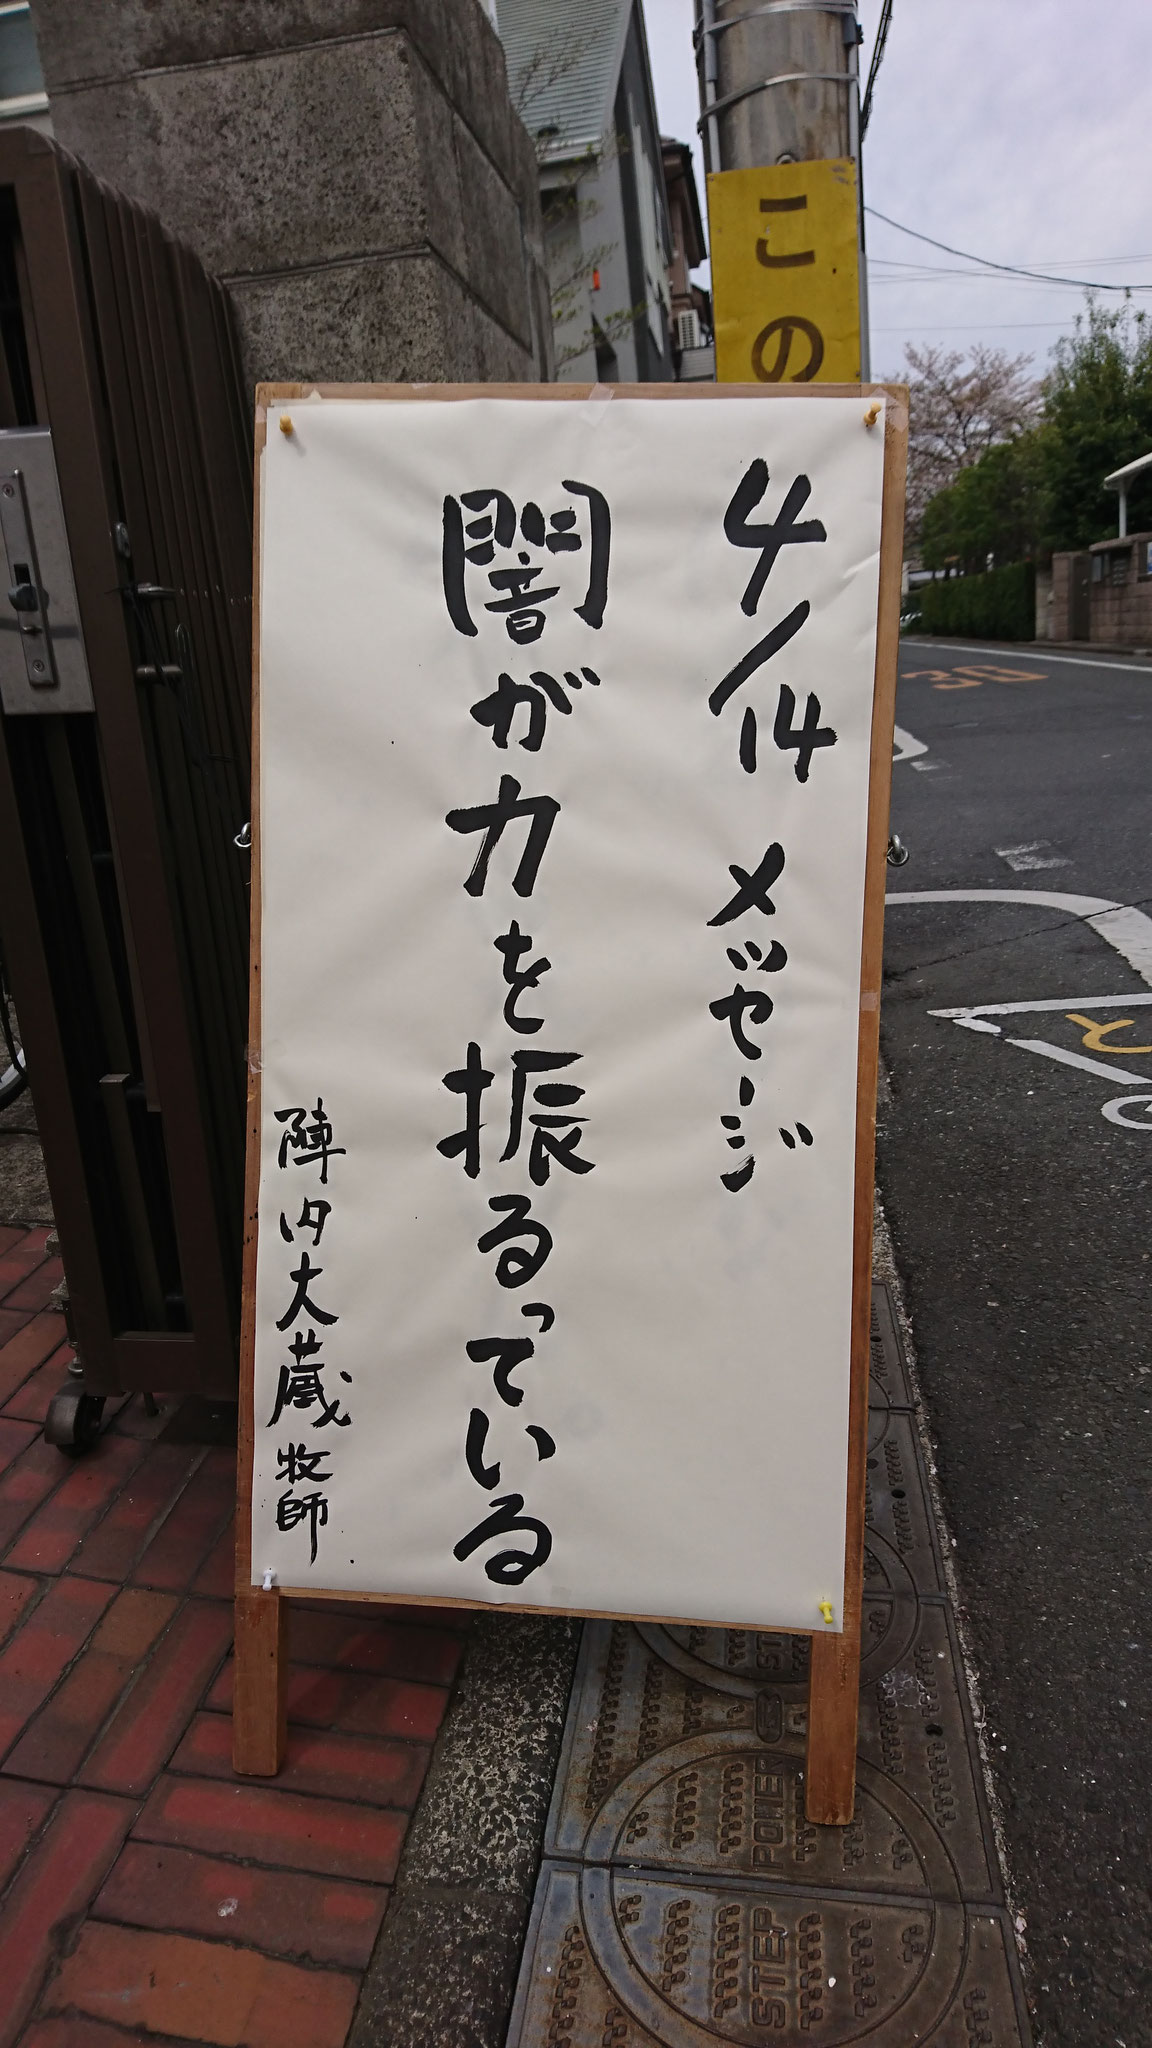 4/14 メッセージ
闇が力を振るっている
陣内大蔵牧師
この
30
と
POWER
STEP